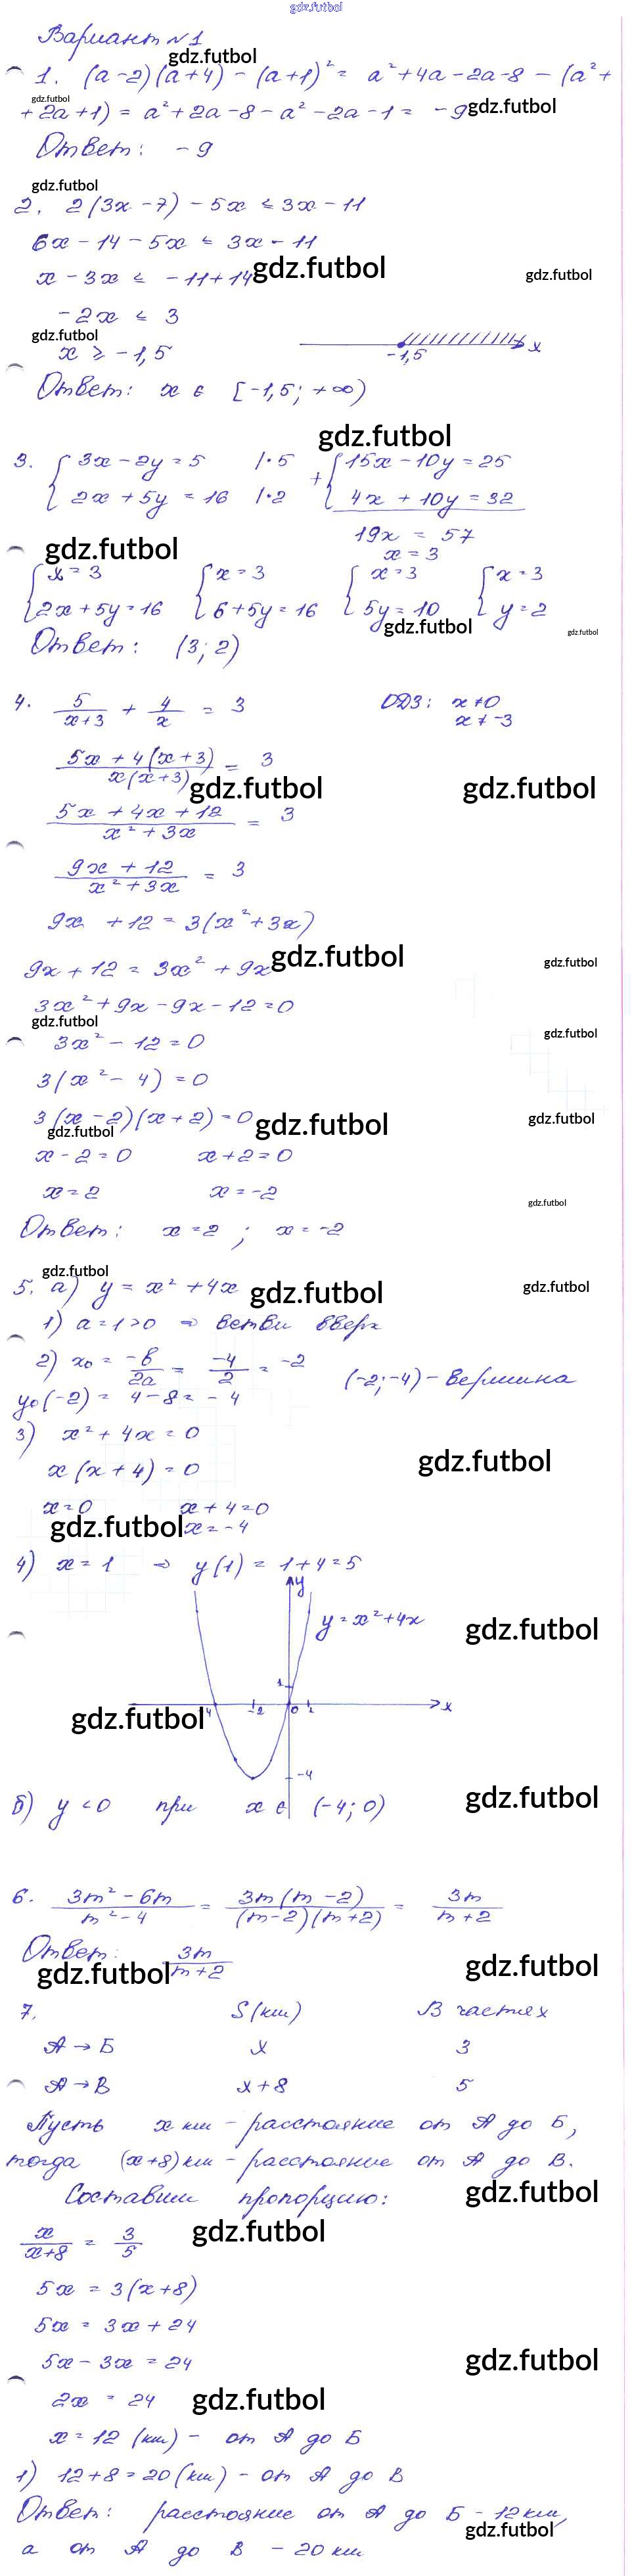 gdz.futbol
Вариант №1
gdz.futbol
1. (a-2)(a+4) - (a+1)² = a²+4a-2a-8 - (a²+
gdz.futbol
+2a+1) = a²+2a-8-a²-2a-1 = -9
gdz.futbol
Ответ: -9
gdz.futbol
2. 2(3x-7) - 5x ≤ 3x-11
6x-14-5x ≤ 3x-11
x-3x ≤ -11+14
gdz.futbol gdz.futbol
-2x ≤ 3
gdz.futbol
x ≥ -1,5 -1,5 x
Ответ: x ∈ [-1,5; +∞)
gdz.futbol
3. { 3x-2y=5 |·5 + { 15x-10y=25
2x+5y=16 |·2 4x+10y=32
19x = 57
x = 3
gdz.futbol
{ x=3 { x=3 { x=3 { x=3
2x+5y=16 6+5y=16 5y=10 y=2
gdz.futbol gdz.futbol
Ответ: (3; 2)
4. 5/(x+3) + 4/x = 3 ОДЗ: x≠0
x≠-3
(5x+4(x+3))/(x(x+3)) = 3
gdz.futbol gdz.futbol
(5x+4x+12)/(x²+3x) = 3
(9x+12)/(x²+3x) = 3
9x+12 = 3(x²+3x)
9x+12 = 3x²+9x
gdz.futbol gdz.futbol
3x²+9x-9x-12=0
gdz.futbol gdz.futbol
3x²-12=0
3(x²-4)=0
3(x-2)(x+2)=0
gdz.futbol gdz.futbol gdz.futbol
x-2=0 x+2=0
x=2 x=-2
gdz.futbol
Ответ: x=2 ; x=-2
gdz.futbol
5. а) y = x²+4x
gdz.futbol gdz.futbol
1) a=1>0 ⇒ ветви вверх
2) x₀ = -b/2a = -4/2 = -2 (-2;-4) - вершина
y₀(-2) = 4-8 = -4
3) x²+4x=0
gdz.futbol
x(x+4)=0
x=0 x+4=0
gdz.futbol x=-4
4) x=1 ⇒ y(1) = 1+4=5
y
y=x²+4x
gdz.futbol
1
-4 -2 0 1 x
gdz.futbol
-4
б) y<0 при x ∈ (-4; 0)
gdz.futbol
6. (3m²-6m)/(m²-4) = (3m(m-2))/((m-2)(m+2)) = 3m/(m+2)
Ответ: 3m/(m+2)
gdz.futbol gdz.futbol
7. S(км) В частях
А → Б x 3
А → В x+8 5
Пусть x км - расстояние от А до Б,
тогда (x+8) км - расстояние от А до В.
Составим пропорцию:
gdz.futbol
x/(x+8) = 3/5
gdz.futbol
5x = 3(x+8)
5x = 3x+24
5x-3x = 24
gdz.futbol
2x = 24
gdz.futbol
x=12 (км) - от А до Б
1) 12+8=20 (км) - от А до В
Ответ: расстояние от А до Б - 12 км,
gdz.futbol
а от А до В - 20 км